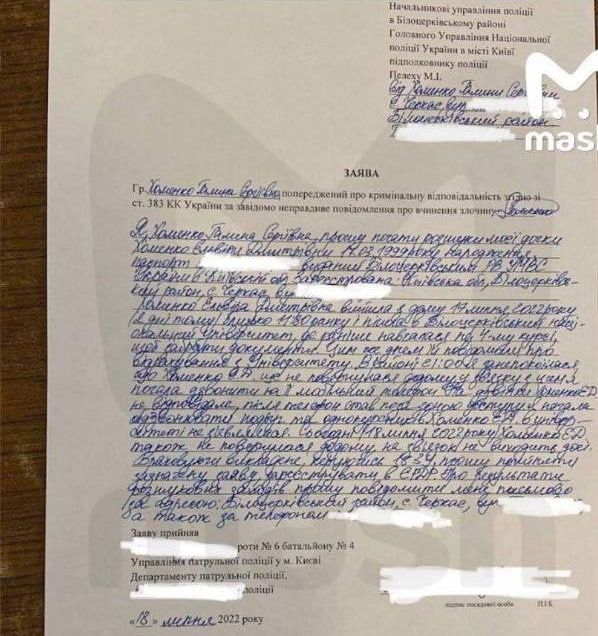 Начальникові управління поліції
в Білоцерківському районі
Головного Управління Національної
поліції України в місті Київі
підполковнику поліції
Пелеху М.І.
Від Хоменко Галини Сергіївни
с. Черкас, вул.
Білоцерківський район
mash
ЗАЯВА
Гр. Хоменко Галина Сергіївна попереджений про кримінальну відповідальність згідно зі
ст. 383 КК України за завідомо неправдиве повідомлення про вчинення злочину
Я, Хоменко Галина Сергіївна, прошу почати розшуки моєї доньки
Хоменко Дмитрівни 14.02.1999 року народження
паспорт виданим Білоцерківським РВ УМВС
України в Київській обл. Зареєстрована Київська обл., Білоцерків-
ський район, с. Черкас, вул.
Хоменко Дмитрівна вийшла з дому липня 2022 року
(2 дні тому) близько 11:30 ранку і пішла в Білоцерківський наці-
ональний Університет, де раніше навчалася на 4-му курсі,
щоб забрати документи. Цим же днем її
Університету. В районі 21:00 я занепокоїлася
що Хоменко ще не повернулася додому у звязку з чим я
почала дзвонити на її мобільний телефон. На дзвінки Хоменко Е.Д.
не відповідала, після телефон став поза зоною доступу. Я почала
подруг та однокурсників. Хоменко Е.Д. в універ-
ситеті не зʼявлялася. Сьогодні 18 липня 2022 року Хоменко Е.Д.
також не повернулася додому, на звʼязок не виходить досі.
Враховуючи викладене, прошу прийняти
зазначену заяву, зареєструвати в ЄРДР. Про результати
розшукових заходів прошу повідомити мене письмово
за адресою: Білоцерківський район, с. Черкас, вул.
а також за телефоном
Заяву прийняв
роти № 6 батальйону № 4
Управління патрульної поліції у м. Києві
Департаменту патрульної поліції,
поліції
підпис посадової особи П.І.Б.
«18» липня 2022 року
mash